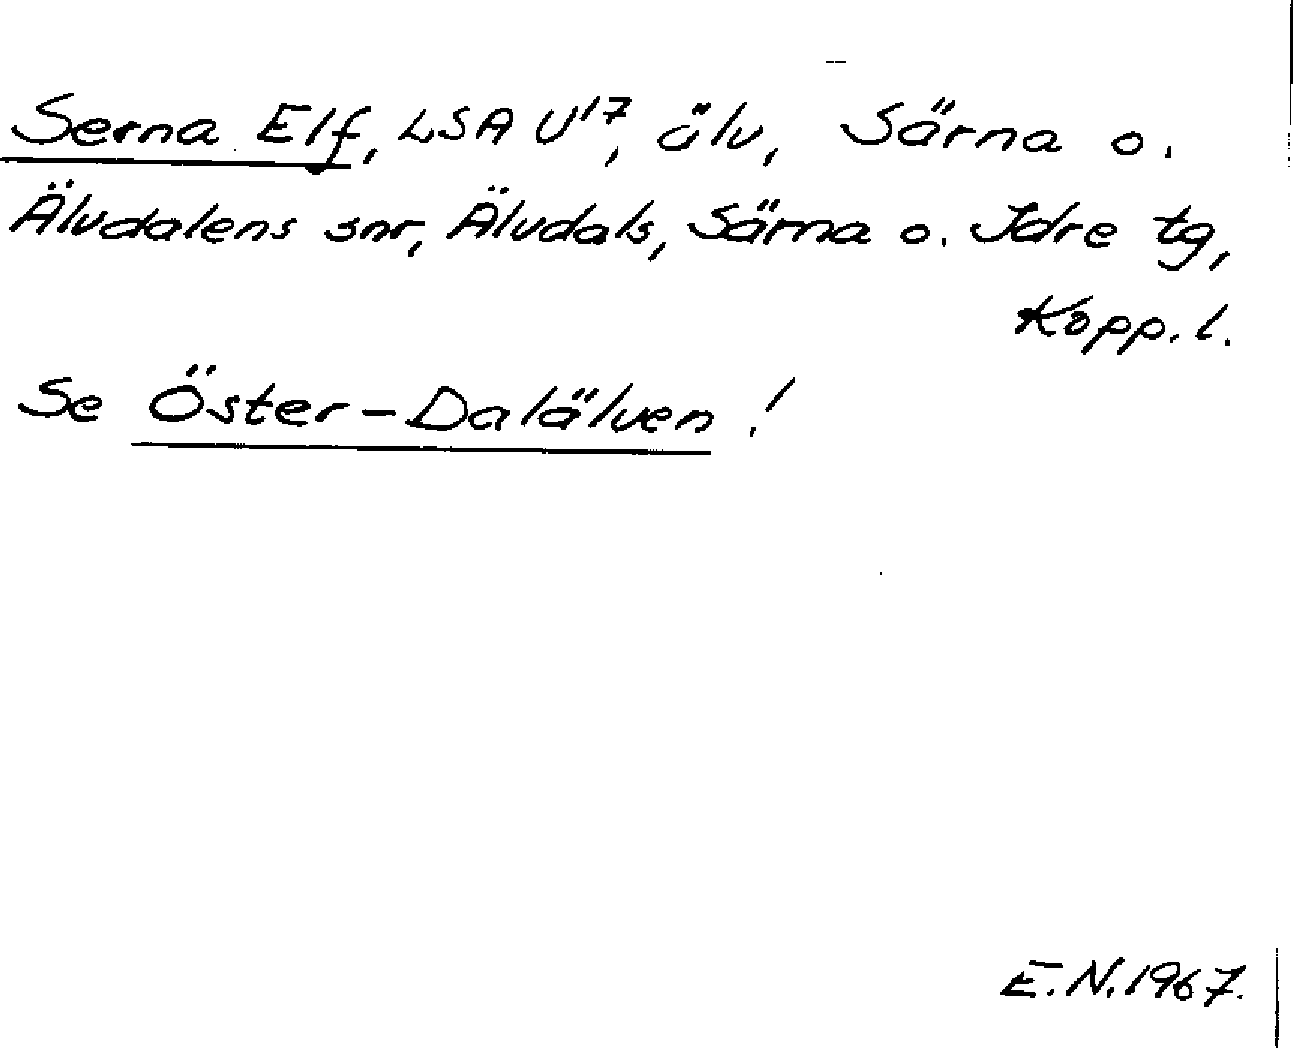 Serna Elf, LSA U¹⁷, älv, Särna o.
Älvdalens snr, Älvdals, Särna o. Idre tg,
Kopp. l.
Se Öster-Dalälven!
E.N. 1967.